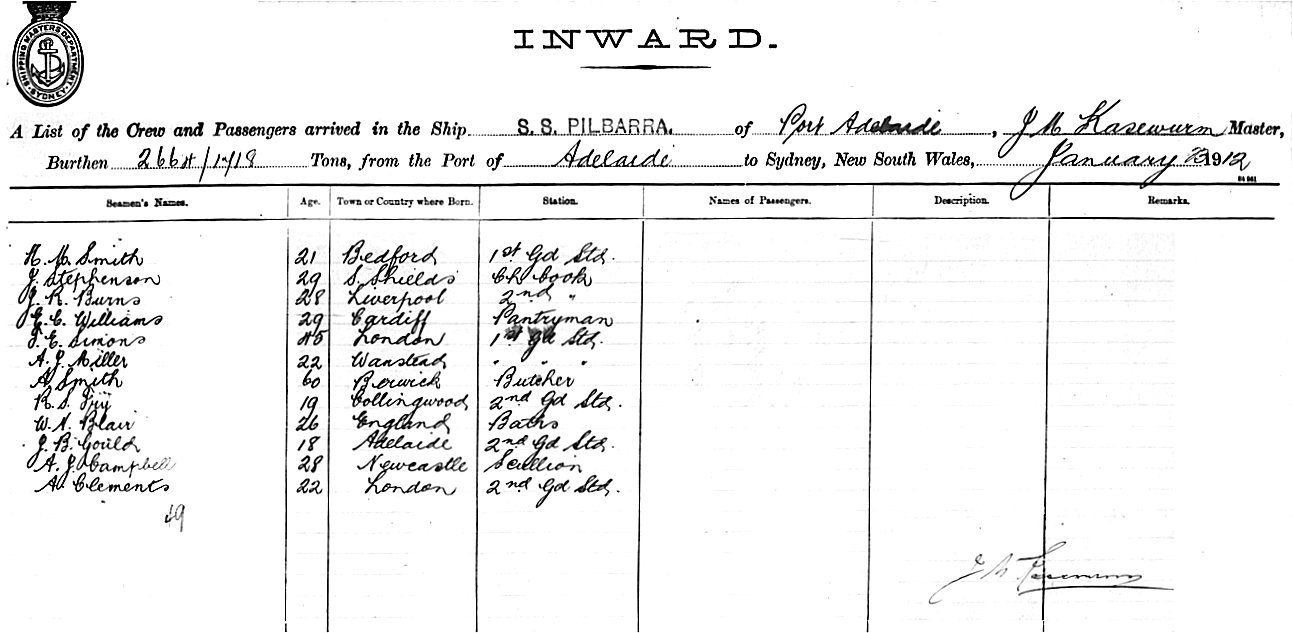 SHIPPING MASTERS DEPARTMENT SYDNEY
INWARD.
A List of the Crew and Passengers arrived in the Ship S. S. PILBARRA. of Port Adelaide, J M Kasewurm Master,
Burthen 2664/1718 Tons, from the Port of Adelaide to Sydney, New South Wales, January 23 1912
Seamen's Names. Age. Town or Country where Born. Station. Names of Passengers. Description. Remarks.
H. M. Smith 21 Bedford 1st Gd Std.
J. Stephenson 29 S. Shields Ch Cook
J. R. Burns 28 Liverpool 2nd "
E. C. Williams 29 Cardiff Pantryman
E. Simons 45 London 1st Gd Std.
A. J. Miller 22 Wanstead " " "
A Smith 60 Berwick Butcher
R. S. 19 Collingwood 2nd Gd Std.
W. N. Blair 26 England Baths
J. B. Gould 18 Adelaide 2nd Gd Std.
A. J. Campbell 28 Newcastle Scullion
A. Clements 22 London 2nd Gd Std.
49
J M Kasewurm